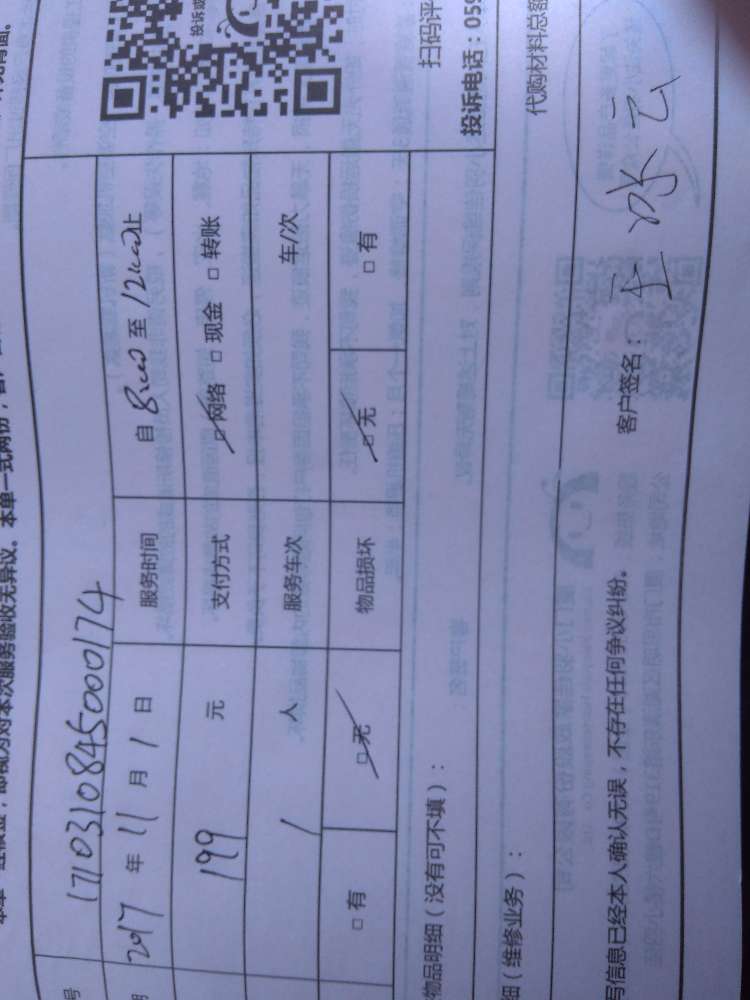 即视为对本次服务验收无异议。本单一式两份，
号 1710310845000174
期 2017 年 11 月 1 日 服务时间 自 8:00 至 12:00 止
199 元 支付方式 ☑网络 □现金 □转账
1 人 服务车次 车/次
□有 ☑无 物品损坏 ☑无 □有
物品明细（没有可不填）：
扫码评
投诉电话：059
细（维修业务）：
代购材料总额
写信息已经本人确认无误，不存在任何争议纠纷。 客户签名：王冰云